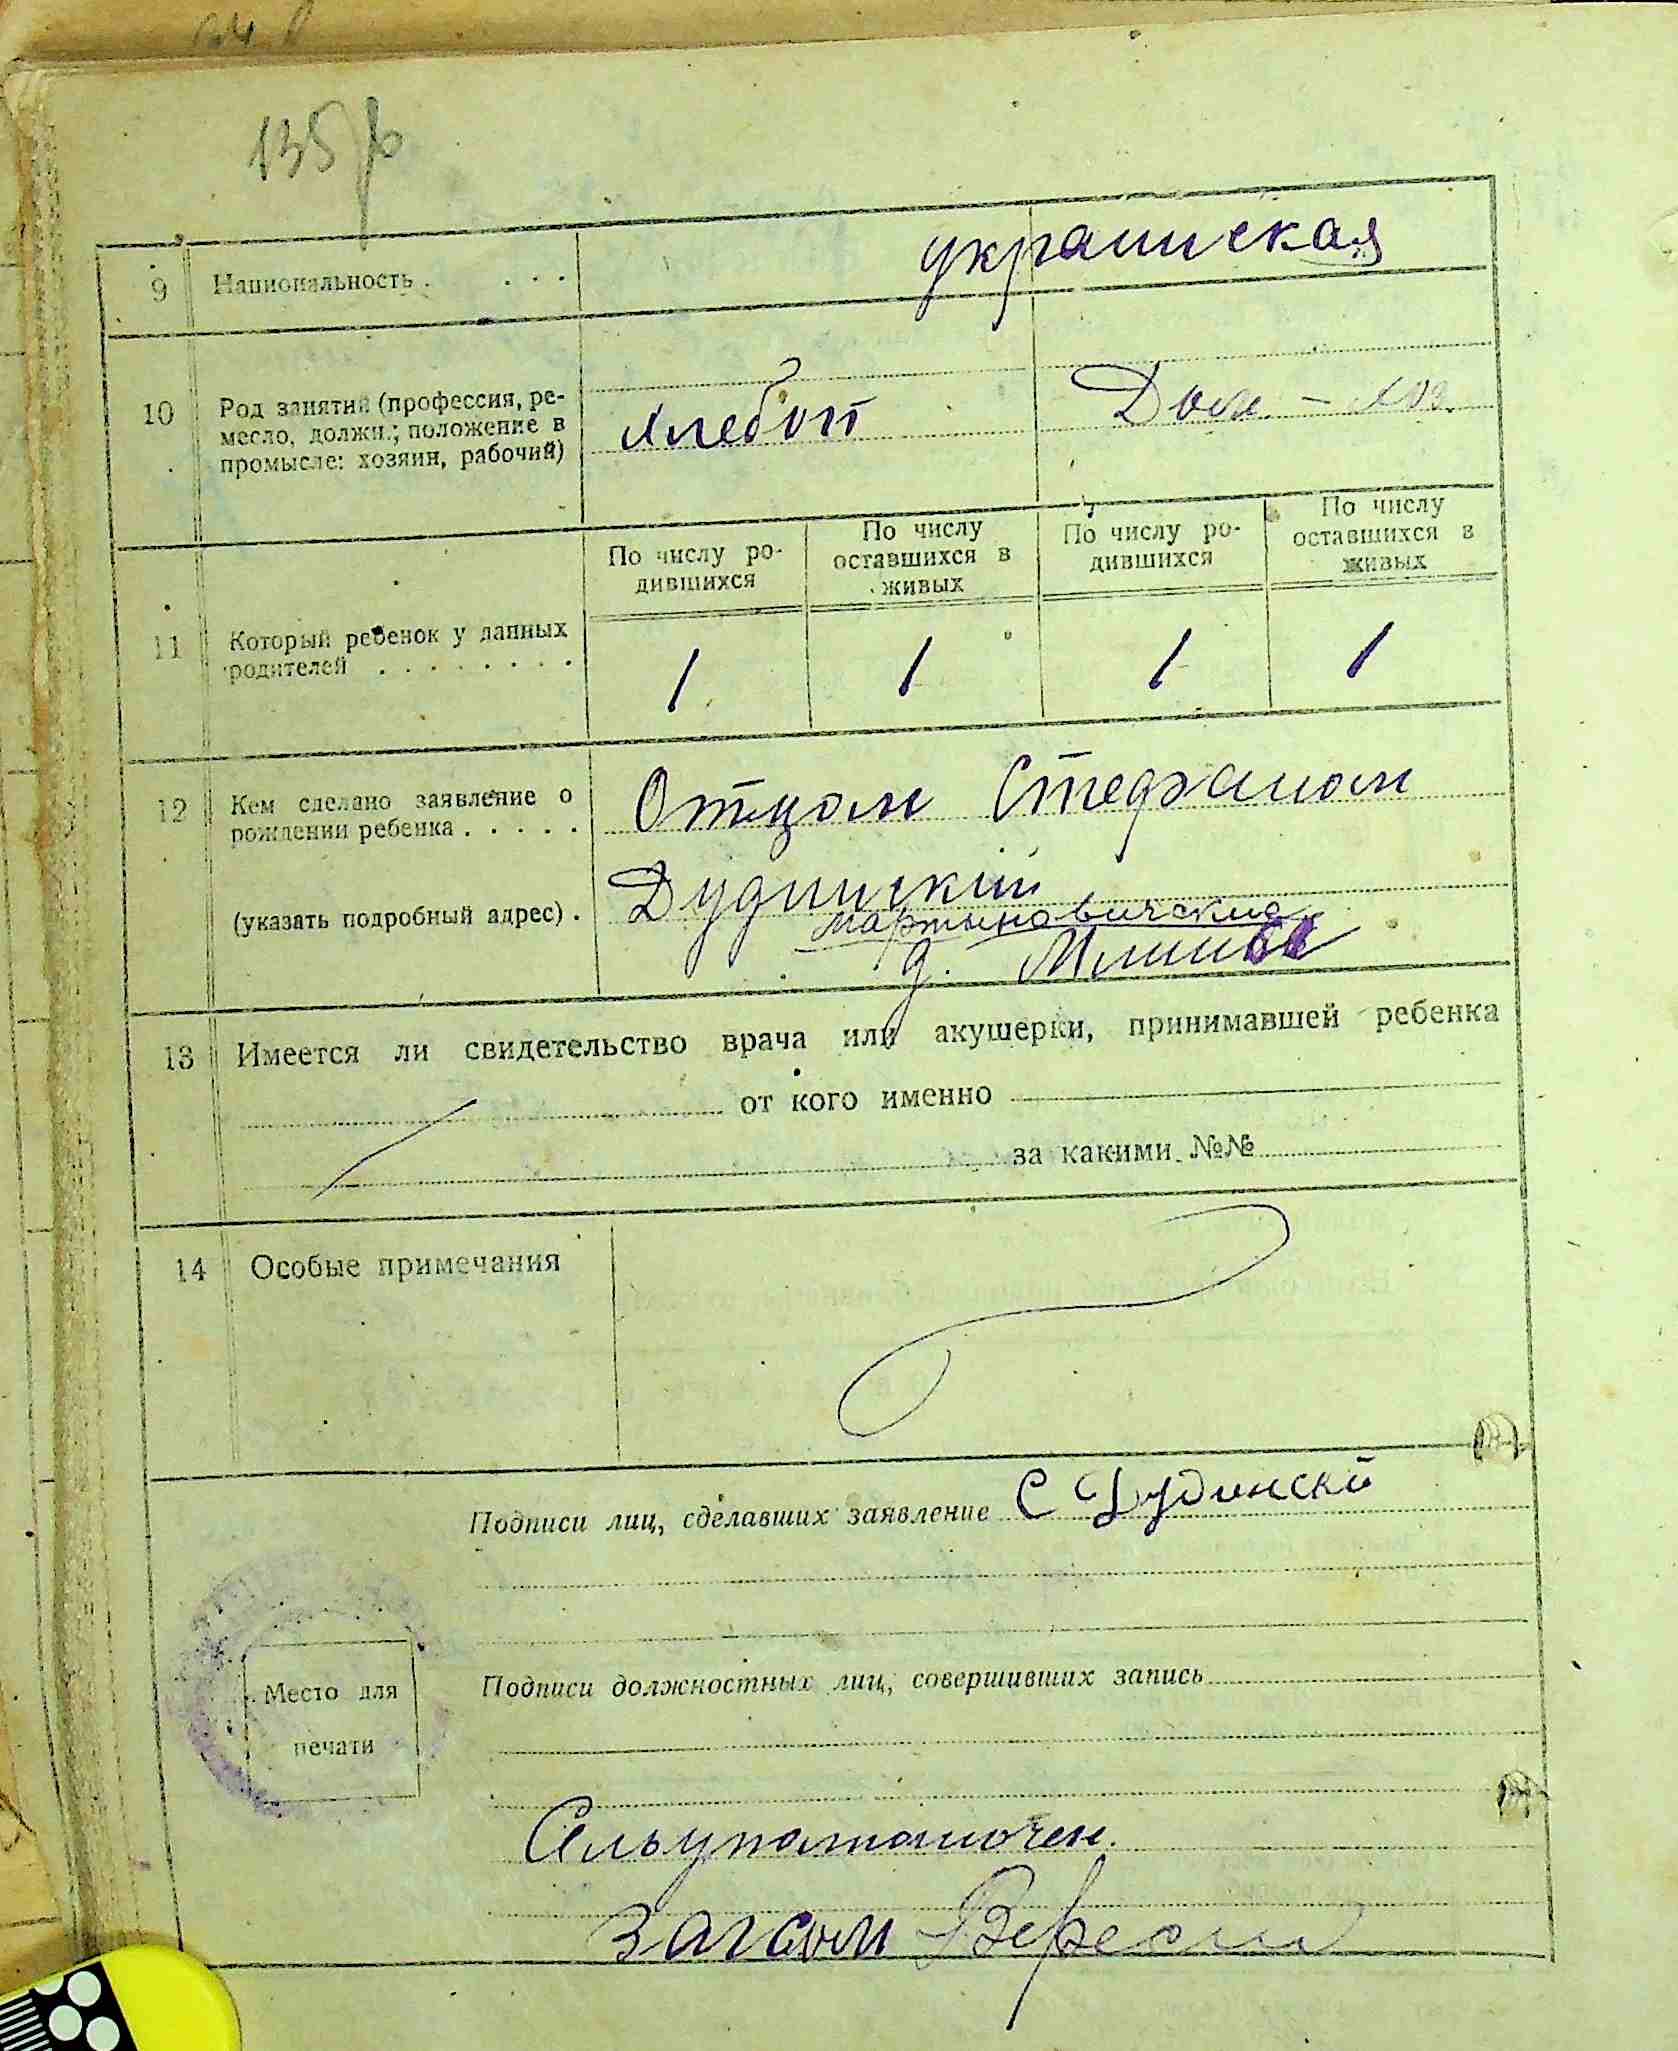 135
9 Национальность . . . . украинская
10 Род занятий (профессия, ре-
месло, должн.; положение в
промысле: хозяин, рабочий)
Хлебоп Дом. – хоз.
По числу ро-
дившихся
По числу
оставшихся в
живых
По числу ро-
дившихся
По числу
оставшихся в
живых
11 Который ребенок у данных
родителей . . . . . . . .
1 1 1 1
12 Кем сделано заявление о
рождении ребенка . . . . .
Отцом Стефаном
(указать подробный адрес) .
Дудинский
мартыновический
д.
13 Имеется ли свидетельство врача или акушерки, принимавшей ребенка
от кого именно
за какими №№
14 Особые примечания
Подписи лиц, сделавших заявление С Дудински
Место для
печати
Подписи должностных лиц, совершивших запись
загсом